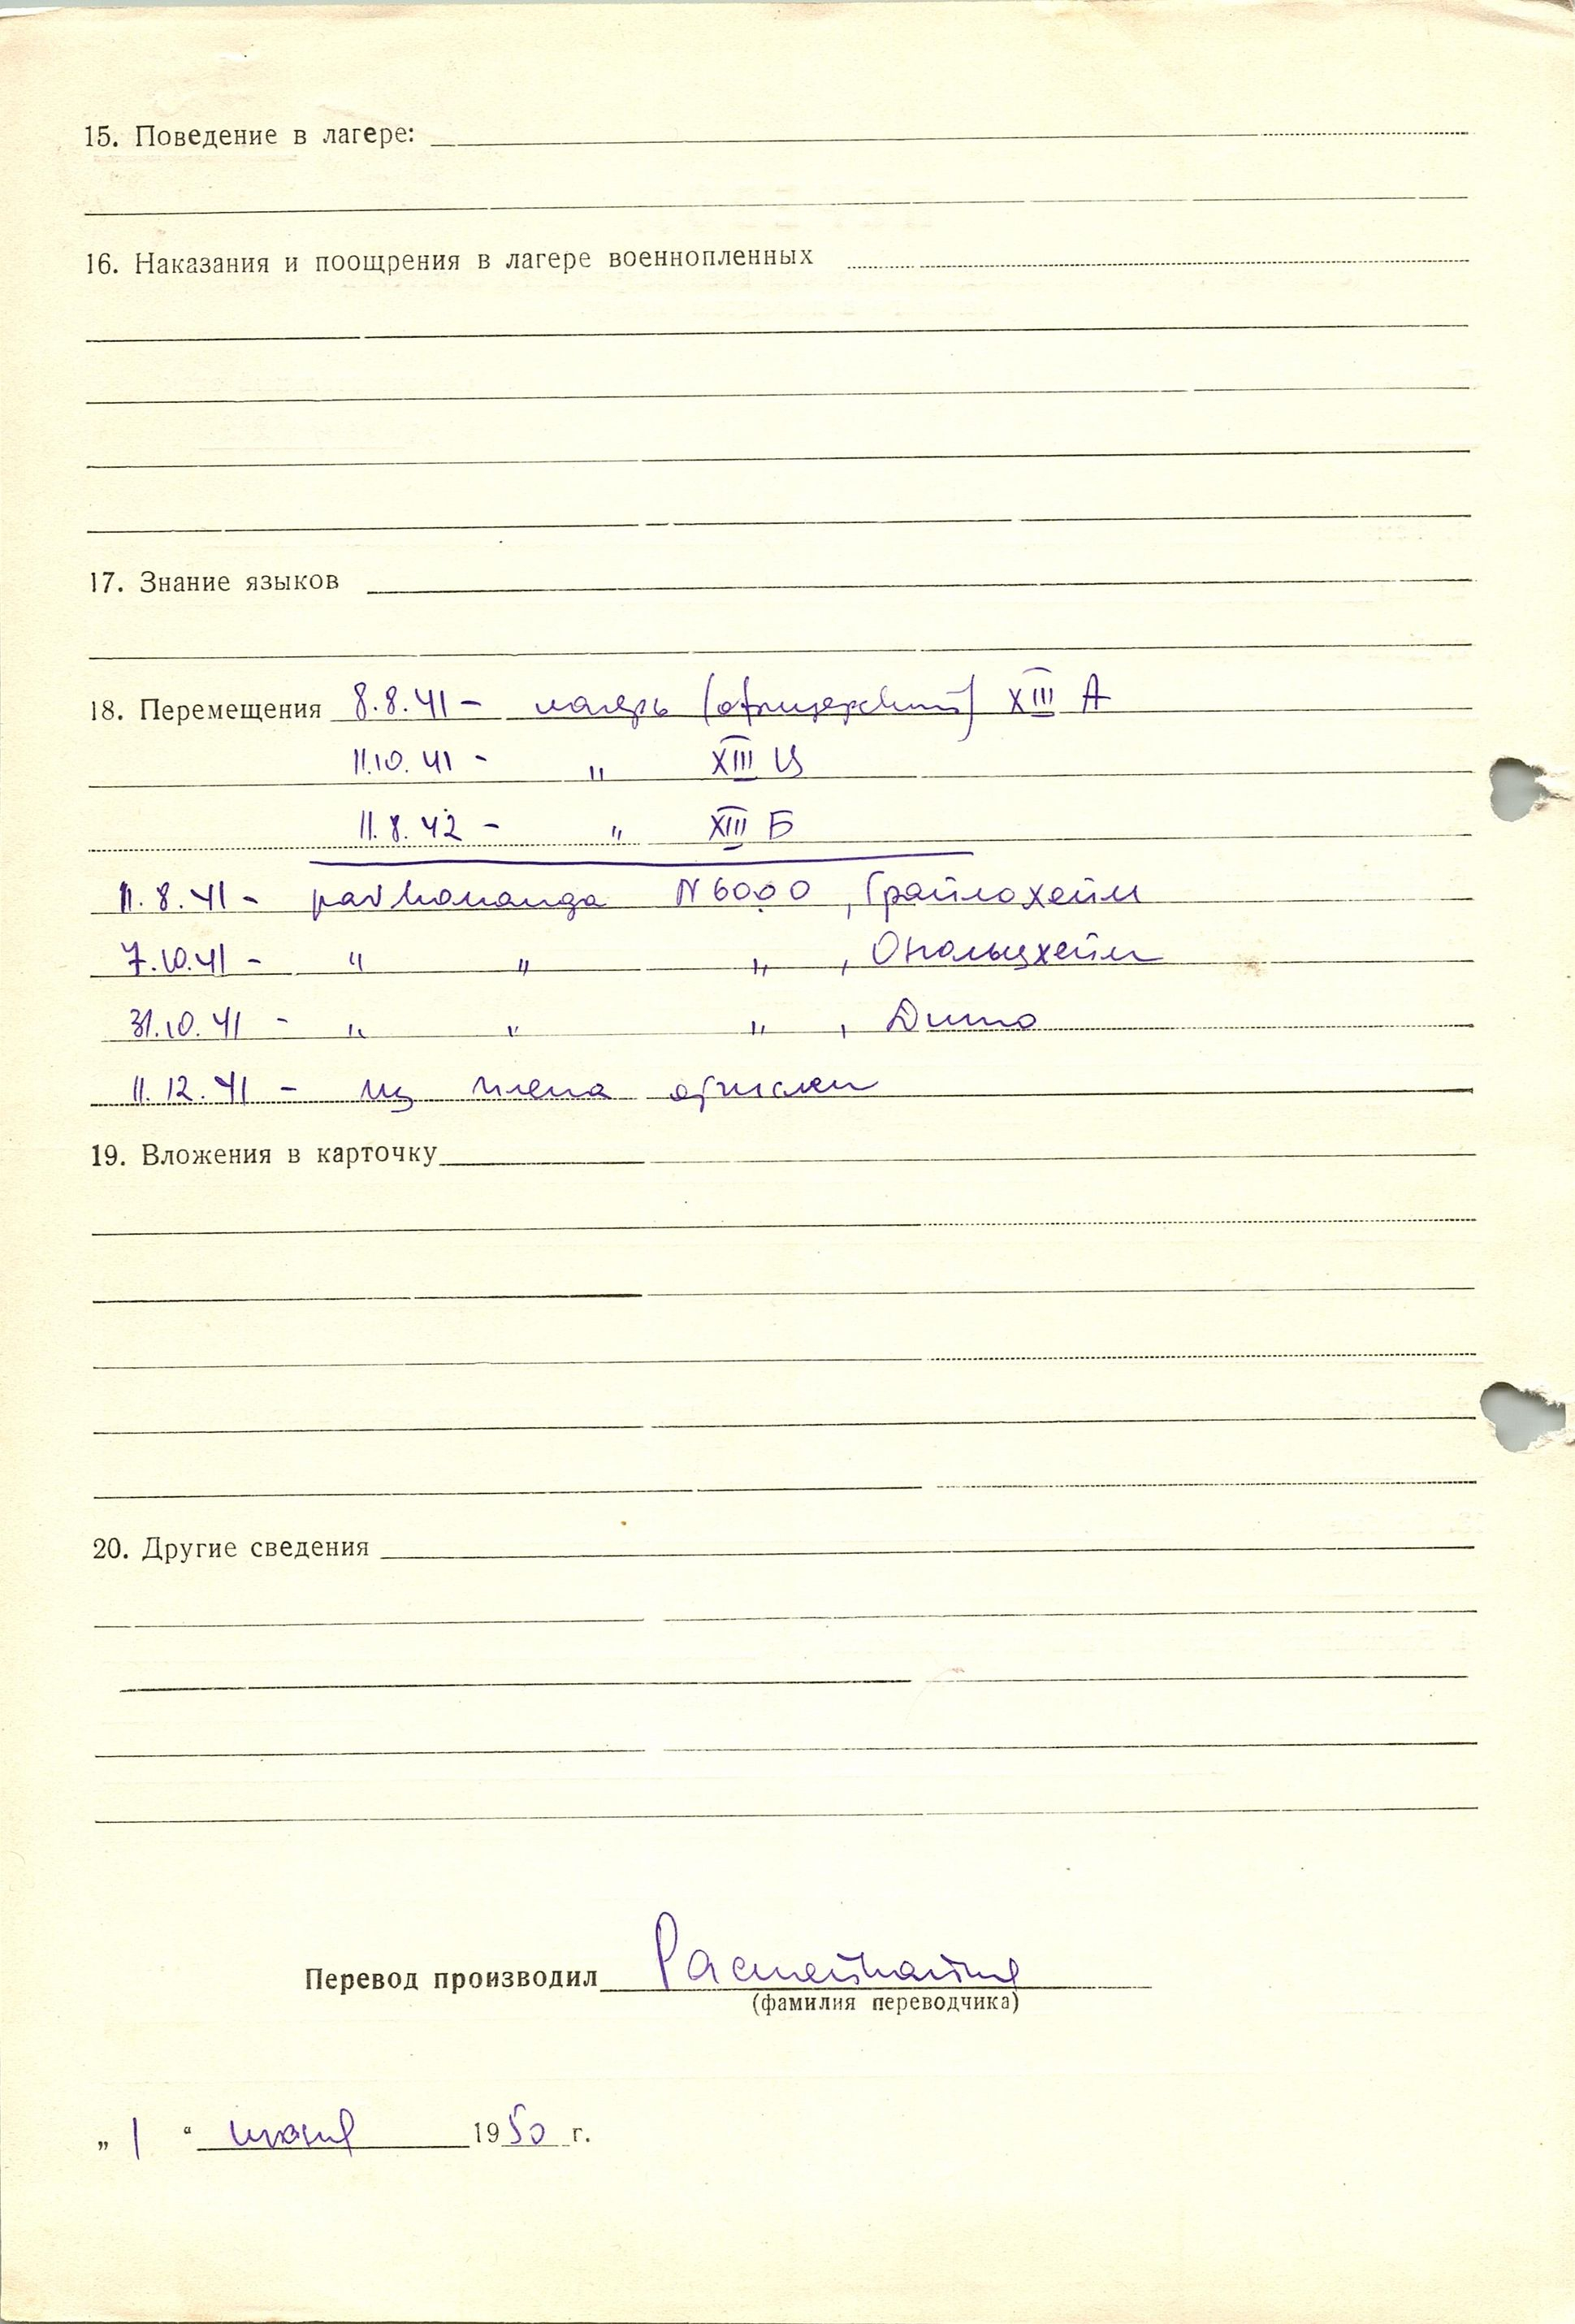 15. Поведение в лагере:
16. Наказания и поощрения в лагере военнопленных
17. Знание языков
18. Перемещения 8.8.41 – лагерь (офицерский) XIII А
11.10.41 - " XIII Ц
11.8.42 – " XIII Б
11.8.41 - рабкоманда N 6000, Грайлсхейм
7.10.41 - " " " , Онольцхейм
31.10.41 - " " " , Дито
11.12.41 – из плена
19. Вложения в карточку
20. Другие сведения
Перевод производил
(фамилия переводчика)
„ 1 “ 1950 г.